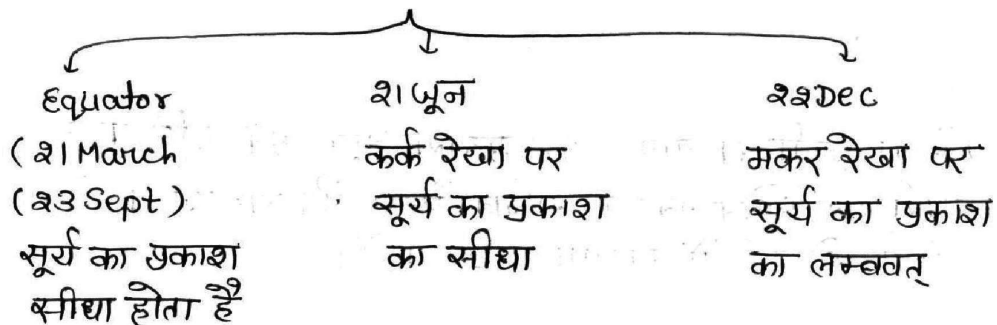 Equator
(21 March
(23 Sept)
सूर्य का प्रकाश
सीधा होता है
21 जून
कर्क रेखा पर
सूर्य का प्रकाश
का सीधा
22 Dec
मकर रेखा पर
सूर्य का प्रकाश
का लम्बवत्